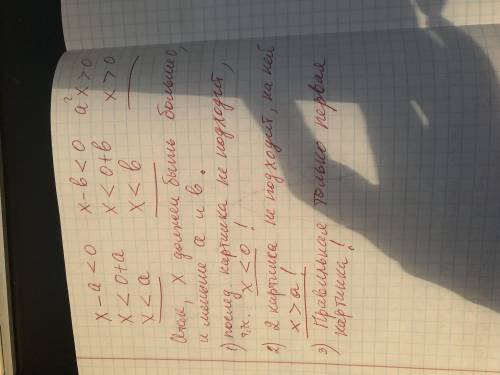 x-a<0 x-b<0 a²x>0
x<0+a x<0+b x>0
x<a x<b
Итак, x должен быть больше 0,
и меньше a и b.
1) послед картинка не подходит,
т.к. x<0!
2) 2 картинка не подходит, на ней
x>a!
3) Правильная только первая
картинка!